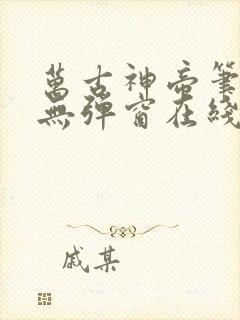 萬古神帝筆
無彈窗在綫
戚某